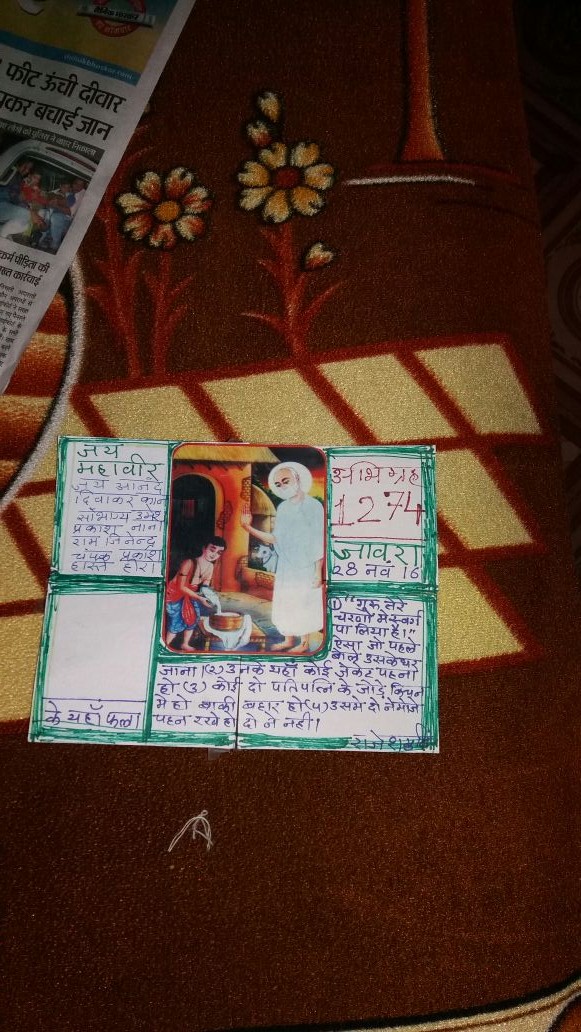 फीट ऊंची दीवार
कर बचाई जान
पीड़िता की
कार्रवाई
जय
महावीर
जय आनंद
दिवाकर कान
सौभाग्य उमेश
प्रकाश नाना
राम जिनेन्द्र
चंपक प्रकाश
हस्ति हीरा
अभिग्रह
1274
जावरा
28 नवं 16
① "गुरु तेरे
चरणों में स्वर्ग
पा लिया है।"
ऐसा जो पहले
बोले उसके घर
जाना (२) उनके यहाँ कोई जेकेट पहना
हो (3) कोई दो पतिपत्नि के जोड़े किचन
मे हो बाकी बहार हो (4) उसमे दो ने मोजे
पहन रखे हो दो ने नहीं।
के यहाँ फला